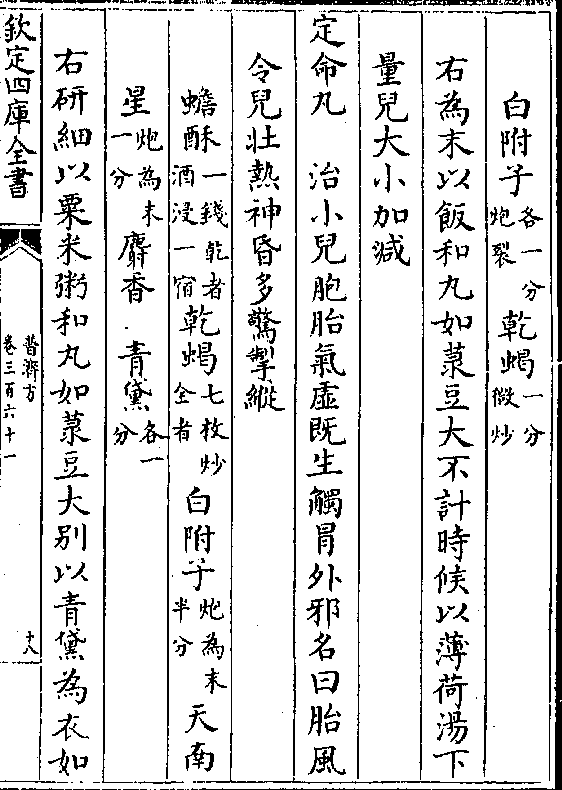 白附子各一分炮裂 乾蝎一分微炒
右為末以飯和丸如菉豆大不計時候以薄荷湯下
量兒大小加減
定命丸 治小兒胞胎氣虛既生觸冒外邪名曰胎風
令兒壯熱神昏多驚掣縱
蟾酥一錢乾者酒浸一宿 乾蝎七枚炒全者 白附子炮為末半分 天南
星炮為末一分 麝香 青黛各一分
右研細以粟米粥和丸如菉豆大別以青黛為衣如
欽定四庫全書
普濟方
卷三百六十一
十八